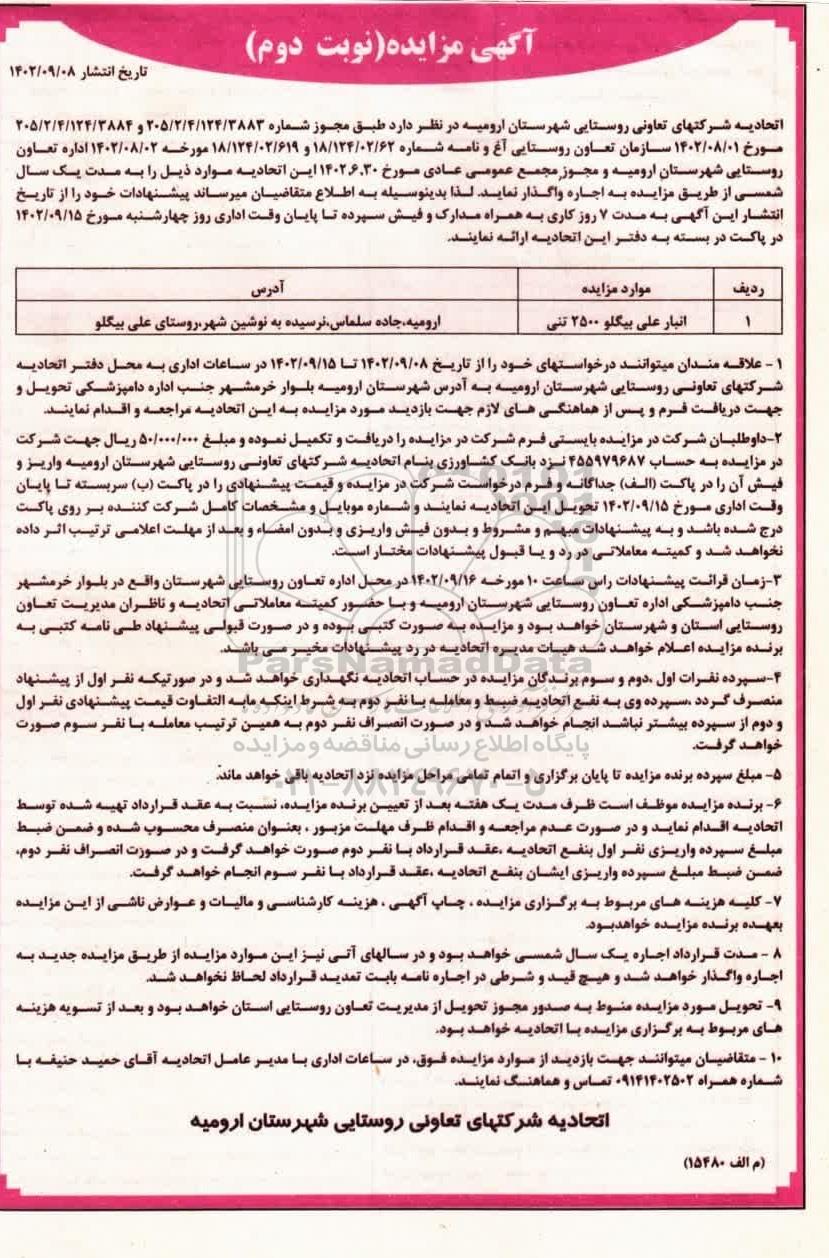 آگهی مزایده(نوبت دوم)
تاریخ انتشار ۱۴۰۲/۰۹/۰۸
اتحادیه شرکتهای تعاونی روستایی شهرستان ارومیه در نظر دارد طبق مجوز شماره ۲۰۵/۲/۴/۱۲۴/۳۸۸۳ و ۲۰۵/۲/۴/۱۲۴/۳۸۸۴
مورخ ۱۴۰۲/۰۸/۰۱ سازمان تعاون روستایی آغ و نامه شماره ۱۸/۱۲۴/۰۲/۶۲ و ۱۸/۱۲۴/۰۲/۶۱۹ مورخه ۱۴۰۲/۰۸/۰۲ اداره تعاون
روستایی شهرستان ارومیه و مجوز مجمع عمومی عادی مورخ ۱۴۰۲.۶.۳۰ این اتحادیه موارد ذیل را به مدت یک سال
شمسی از طریق مزایده به اجاره واگذار نماید. لذا بدینوسیله به اطلاع متقاضیان میرساند پیشنهادات خود را از تاریخ
انتشار این آگهی به مدت ۷ روز کاری به همراه مدارک و فیش سپرده تا پایان وقت اداری روز چهارشنبه مورخ ۱۴۰۲/۰۹/۱۵
در پاکت در بسته به دفتر این اتحادیه ارائه نمایند.
ردیف موارد مزایده آدرس
۱ انبار علی بیگلو ۲۵۰۰ تنی ارومیه،جاده سلماس،نرسیده به نوشین شهر،روستای علی بیگلو
۱ - علاقه مندان میتوانند درخواستهای خود را از تاریخ ۱۴۰۲/۰۹/۰۸ تا ۱۴۰۲/۰۹/۱۵ در ساعات اداری به محل دفتر اتحادیه
شرکتهای تعاونی روستایی شهرستان ارومیه به آدرس شهرستان ارومیه بلوار خرمشهر جنب اداره دامپزشکی تحویل و
جهت دریافت فرم و پس از هماهنگی های لازم جهت بازدید مورد مزایده به این اتحادیه مراجعه و اقدام نمایند.
۲-داوطلبان شرکت در مزایده بایستی فرم شرکت در مزایده را دریافت و تکمیل نموده و مبلغ ۵۰/۰۰۰/۰۰۰ ریال جهت شرکت
در مزایده به حساب ۴۵۵۹۷۹۶۸۷ نزد بانک کشاورزی بنام اتحادیه شرکتهای تعاونی روستایی شهرستان ارومیه واریز و
فیش آن را در پاکت (الف) جداگانه و فرم درخواست شرکت در مزایده و قیمت پیشنهادی را در پاکت (ب) سربسته تا پایان
وقت اداری مورخ ۱۴۰۲/۰۹/۱۵ تحویل این اتحادیه نمایند و شماره موبایل و مشخصات کامل شرکت کننده بر روی پاکت
درج شده باشد و به پیشنهادات مبهم و مشروط و بدون فیش واریزی و بدون امضاء و بعد از مهلت اعلامی ترتیب اثر داده
نخواهد شد و کمیته معاملاتی در رد و یا قبول پیشنهادات مختار است.
۳-زمان قرائت پیشنهادات راس ساعت ۱۰ مورخه ۱۴۰۲/۰۹/۱۶ در محل اداره تعاون روستایی شهرستان واقع در بلوار خرمشهر
جنب دامپزشکی اداره تعاون روستایی شهرستان ارومیه و با حضور کمیته معاملاتی اتحادیه و ناظران مدیریت تعاون
روستایی استان و شهرستان خواهد بود و مزایده به صورت کتبی بوده و در صورت قبولی پیشنهاد طی نامه کتبی به
برنده مزایده اعلام خواهد شد هیات مدیره اتحادیه در رد پیشنهادات مخیر می باشد.
ParsNamadData
۴-سپرده نفرات اول ،دوم و سوم برندگان مزایده در حساب اتحادیه نگهداری خواهد شد و در صورتیکه نفر اول از پیشنهاد
منصرف گردد ،سپرده وی به نفع اتحادیه ضبط و معامله با نفر دوم به شرط اینکه مابه التفاوت قیمت پیشنهادی نفر اول
و دوم از سپرده بیشتر نباشد انجام خواهد شد و در صورت انصراف نفر دوم به همین ترتیب معامله با نفر سوم صورت
خواهد گرفت.
پایگاه اطلاع رسانی مناقصه و مزایده
۵- مبلغ سپرده برنده مزایده تا پایان برگزاری و اتمام تمامی مراحل مزایده نزد اتحادیه باقی خواهد ماند.
۰۲۱-۸۸۳۴۹۶۷۰-۵
۶- برنده مزایده موظف است ظرف مدت یک هفته بعد از تعیین برنده مزایده، نسبت به عقد قرارداد تهیه شده توسط
اتحادیه اقدام نماید و در صورت عدم مراجعه و اقدام ظرف مهلت مزبور ، بعنوان منصرف محسوب شده و ضمن ضبط
مبلغ سپرده واریزی نفر اول بنفع اتحادیه ،عقد قرارداد با نفر دوم صورت خواهد گرفت و در صورت انصراف نفر دوم،
ضمن ضبط مبلغ سپرده واریزی ایشان بنفع اتحادیه ،عقد قرارداد با نفر سوم انجام خواهد گرفت.
۷- کلیه هزینه های مربوط به برگزاری مزایده ، چاپ آگهی ، هزینه کارشناسی و مالیات و عوارض ناشی از این مزایده
بعهده برنده مزایده خواهدبود.
۸ - مدت قرارداد اجاره یک سال شمسی خواهد بود و در سالهای آتی نیز این موارد مزایده از طریق مزایده جدید به
اجاره واگذار خواهد شد و هیچ قید و شرطی در اجاره نامه بابت تمدید قرارداد لحاظ نخواهد شد.
۹- تحویل مورد مزایده منوط به صدور مجوز تحویل از مدیریت تعاون روستایی استان خواهد بود و بعد از تسویه هزینه
های مربوط به برگزاری مزایده با اتحادیه خواهد بود.
۱۰ - متقاضیان میتوانند جهت بازدید از موارد مزایده فوق، در ساعات اداری با مدیر عامل اتحادیه آقای حمید حنیفه با
شماره همراه ۰۹۱۴۱۴۰۲۵۰۲ تماس و هماهنگ نمایند.
اتحادیه شرکتهای تعاونی روستایی شهرستان ارومیه
(م الف ۱۵۴۸۰)